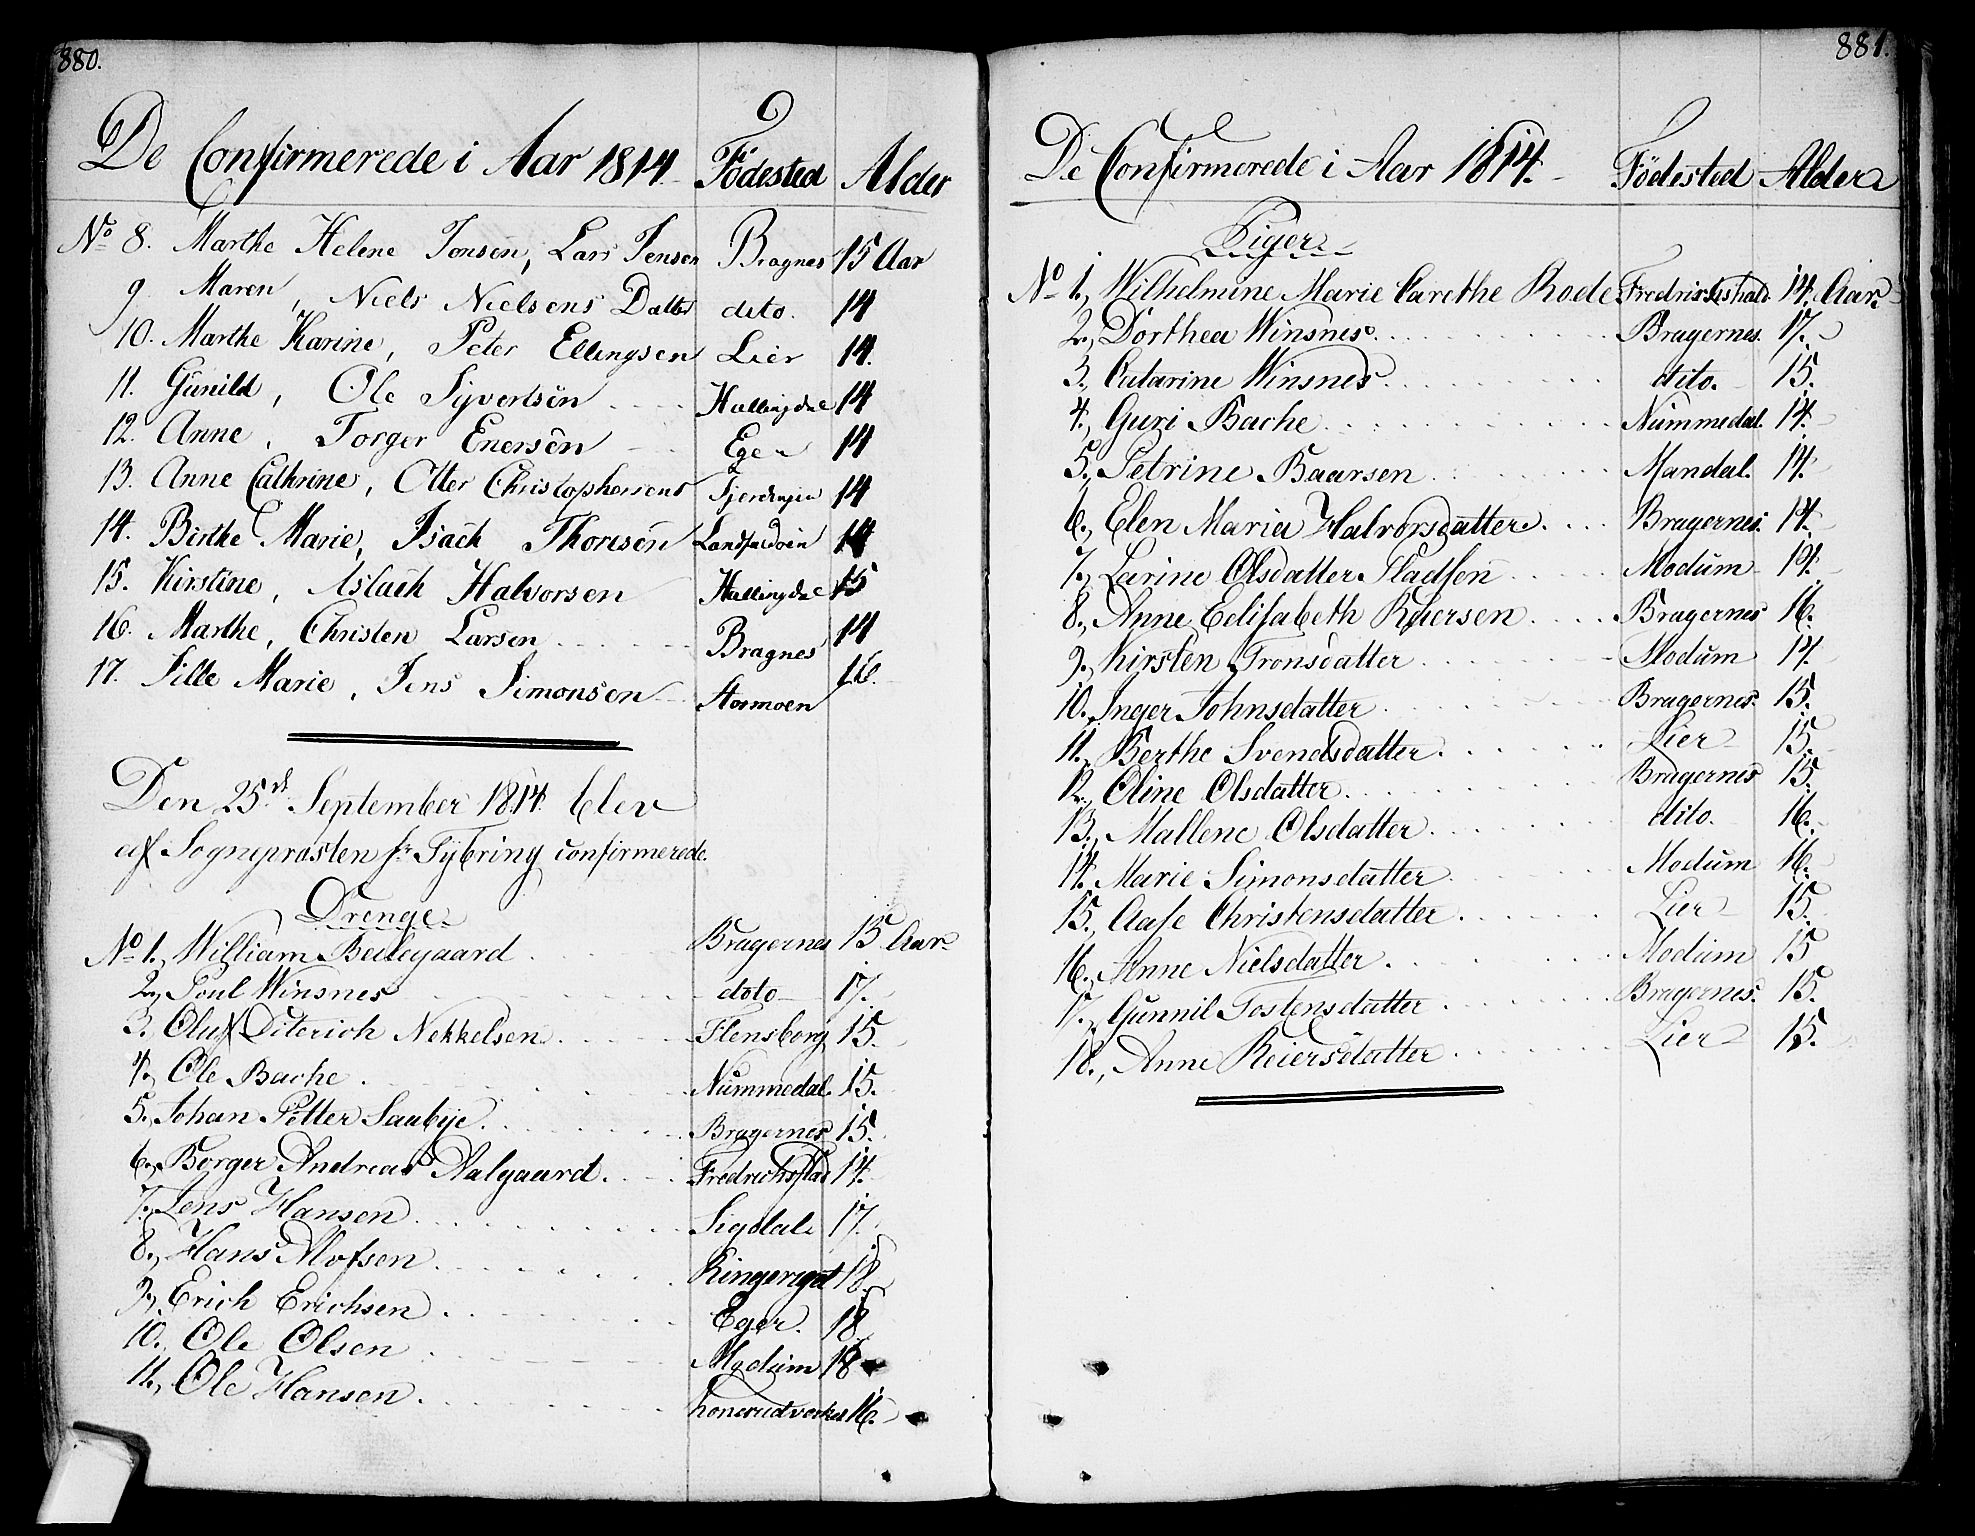 880.
De Confirmerede i Aar 1814. Födested Alder
No 8. Marthe Helene Jonsen, Lars Jensen Bragnes 15 Aar
9. Maren, Niels Nielsens Datter dito. 14
10. Marthe Karine, Peter Ellingsen Lier 14.
11. Gunild, Ole Syvertsen Hallingdal 14
12. Anne, Torger Enersen Eger 14
13. Anne Cathrine, Otter Christophersens Fjerdingen 14
14. Birthe Marie, Isach Thoresen Landfaldöen 14
15. Kirstine, Aslach Halvorsen Hallingdal 15
16. Marthe, Christen Larsen Bragnes 14
17. Sille Marie, Jens Simonsen Stormoen 16.
Den 25de September 1814 blev
af Sogneprosten hr Tybring confirmerede.
Drenge
No 1., William Beilegaard Bragernes 15 Aar
2., Poul Winsnes doto 17.
3. Oluf Diterich Nekkelsen Flensborg 15.
4., Ole Bache Nummedal. 15.
5., Johan Petter Saubye. Bragernes 15.
6., Borger Andreas Aalgaard. Fredrichstad 14.
7., Jens Hansen Sigdal 17.
8., Hans Alofsen Ringeriget 18.
9., Erich Erichsen Eger. 18
10., Ole Olsen Modum 18
11., Ole Hansen Honerudverket 16.
881.
De Confirmerede i Aar 1814. Födested Alder
Piger
No 1., Wilhelmine Marie Carethe Rode Fredrikshald 14. Aar.
2., Dorthea Winsnes. Bragernes. 17.
3., Catarine Winsnes dito. 15.
4., Guri Bache Nummedal. 14.
5., Petrine Baarsen Mandal. 14.
6., Elen Maria Halvorsdatter. Bragernes. 14.
7., Larine Olsdatter Stadsen Modum 14.
8., Anne Eelisabeth Reiersen Bragernes 16.
9., Kirsten Tronsdatter Modum 14.
10., Inger Johnsdatter Bragernes. 15.
11., Berthe Svendsdatter. Lier 15.
12., Oline Olsdatter. Bragernes 15.
13., Mallene Olsdatter dito. 16.
14. Marie Simonsdatter Modum 16.
15., Aase Christensdatter Lier 15.
16., Anne Nielsdatter Modum 15
17., Gunnil Tostensdatter Bragernes. 15.
18., Anne Reiersdatter Lier 15.